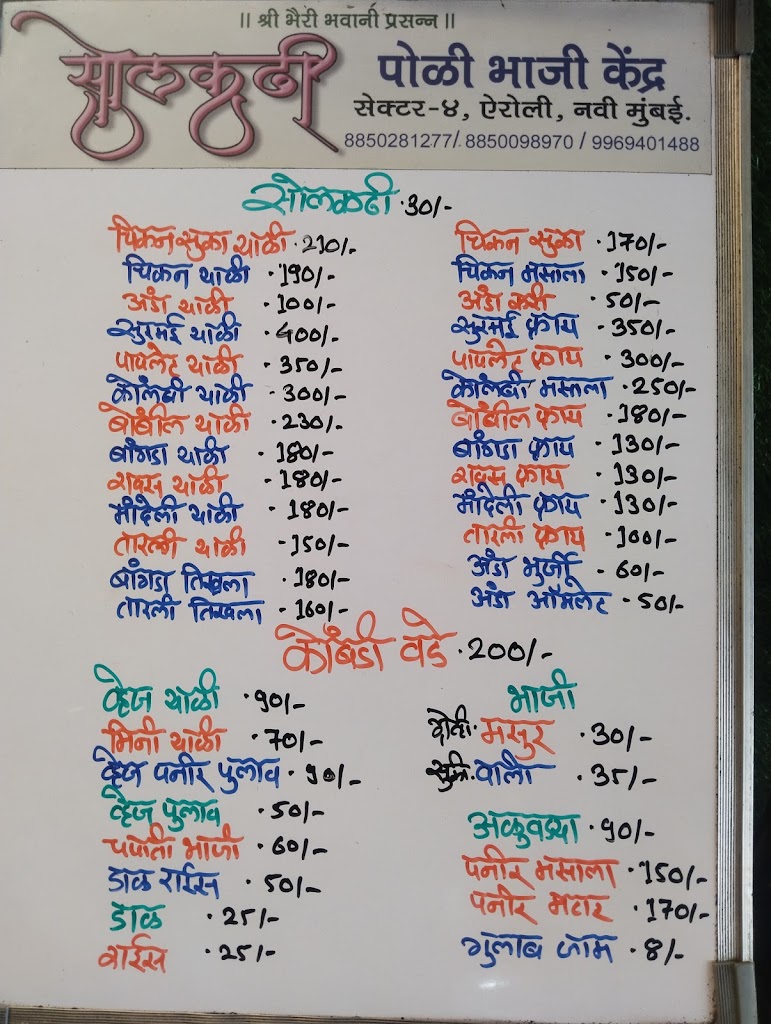 ॥ श्री भैरी भवानी प्रसन्न ॥
सोलकढी
पोळी भाजी केंद्र
सेक्टर-४, ऐरोली, नवी मुंबई.
8850281277/ 8850098970 / 9969401488
सोलकढी . 30/-
चिकन सुका थाळी . 210/-
चिकन थाळी . 190/-
अंडा थाळी . 100/-
सुरमई थाळी . 400/-
पापलेट थाळी . 350/-
कोलंबी थाळी . 300/-
बोंबील थाळी . 230/-
बांगडा थाळी . 180/-
रावस थाळी - 180/-
मांदेली थाळी . 180/-
तारली थाळी - 150/-
बांगडा तिखला . 180/-
तारली तिखला . 160/-
चिकन सुका . 170/-
चिकन मसाला . 150/-
अंडा करी . 50/-
सुरमई फ्राय . 350/-
पापलेट फ्राय . 300/-
कोलंबी मसाला . 250/-
बोंबील फ्राय . 180/-
बांगडा फ्राय . 130/-
रावस फ्राय . 130/-
मांदेली फ्राय . 130/-
तारली फ्राय . 100/-
अंडा भुर्जी . 60/-
अंडा ऑमलेट . 50/-
कोंबडी वडे . 200/-
व्हेज थाळी . 90/-
मिनी थाळी . 70/-
व्हेज पनीर पुलाव . 90/-
व्हेज पुलाव . 50/-
चपाती भाजी . 60/-
डाळ राईस . 50/-
डाळ . 25/-
राईस . 25/-
भाजी
मसुर . 30/-
सुकी. वाला . 35/-
अळुवड्या . 90/-
पनीर मसाला . 150/-
पनीर मटार . 170/-
गुलाब जाम . 8/-